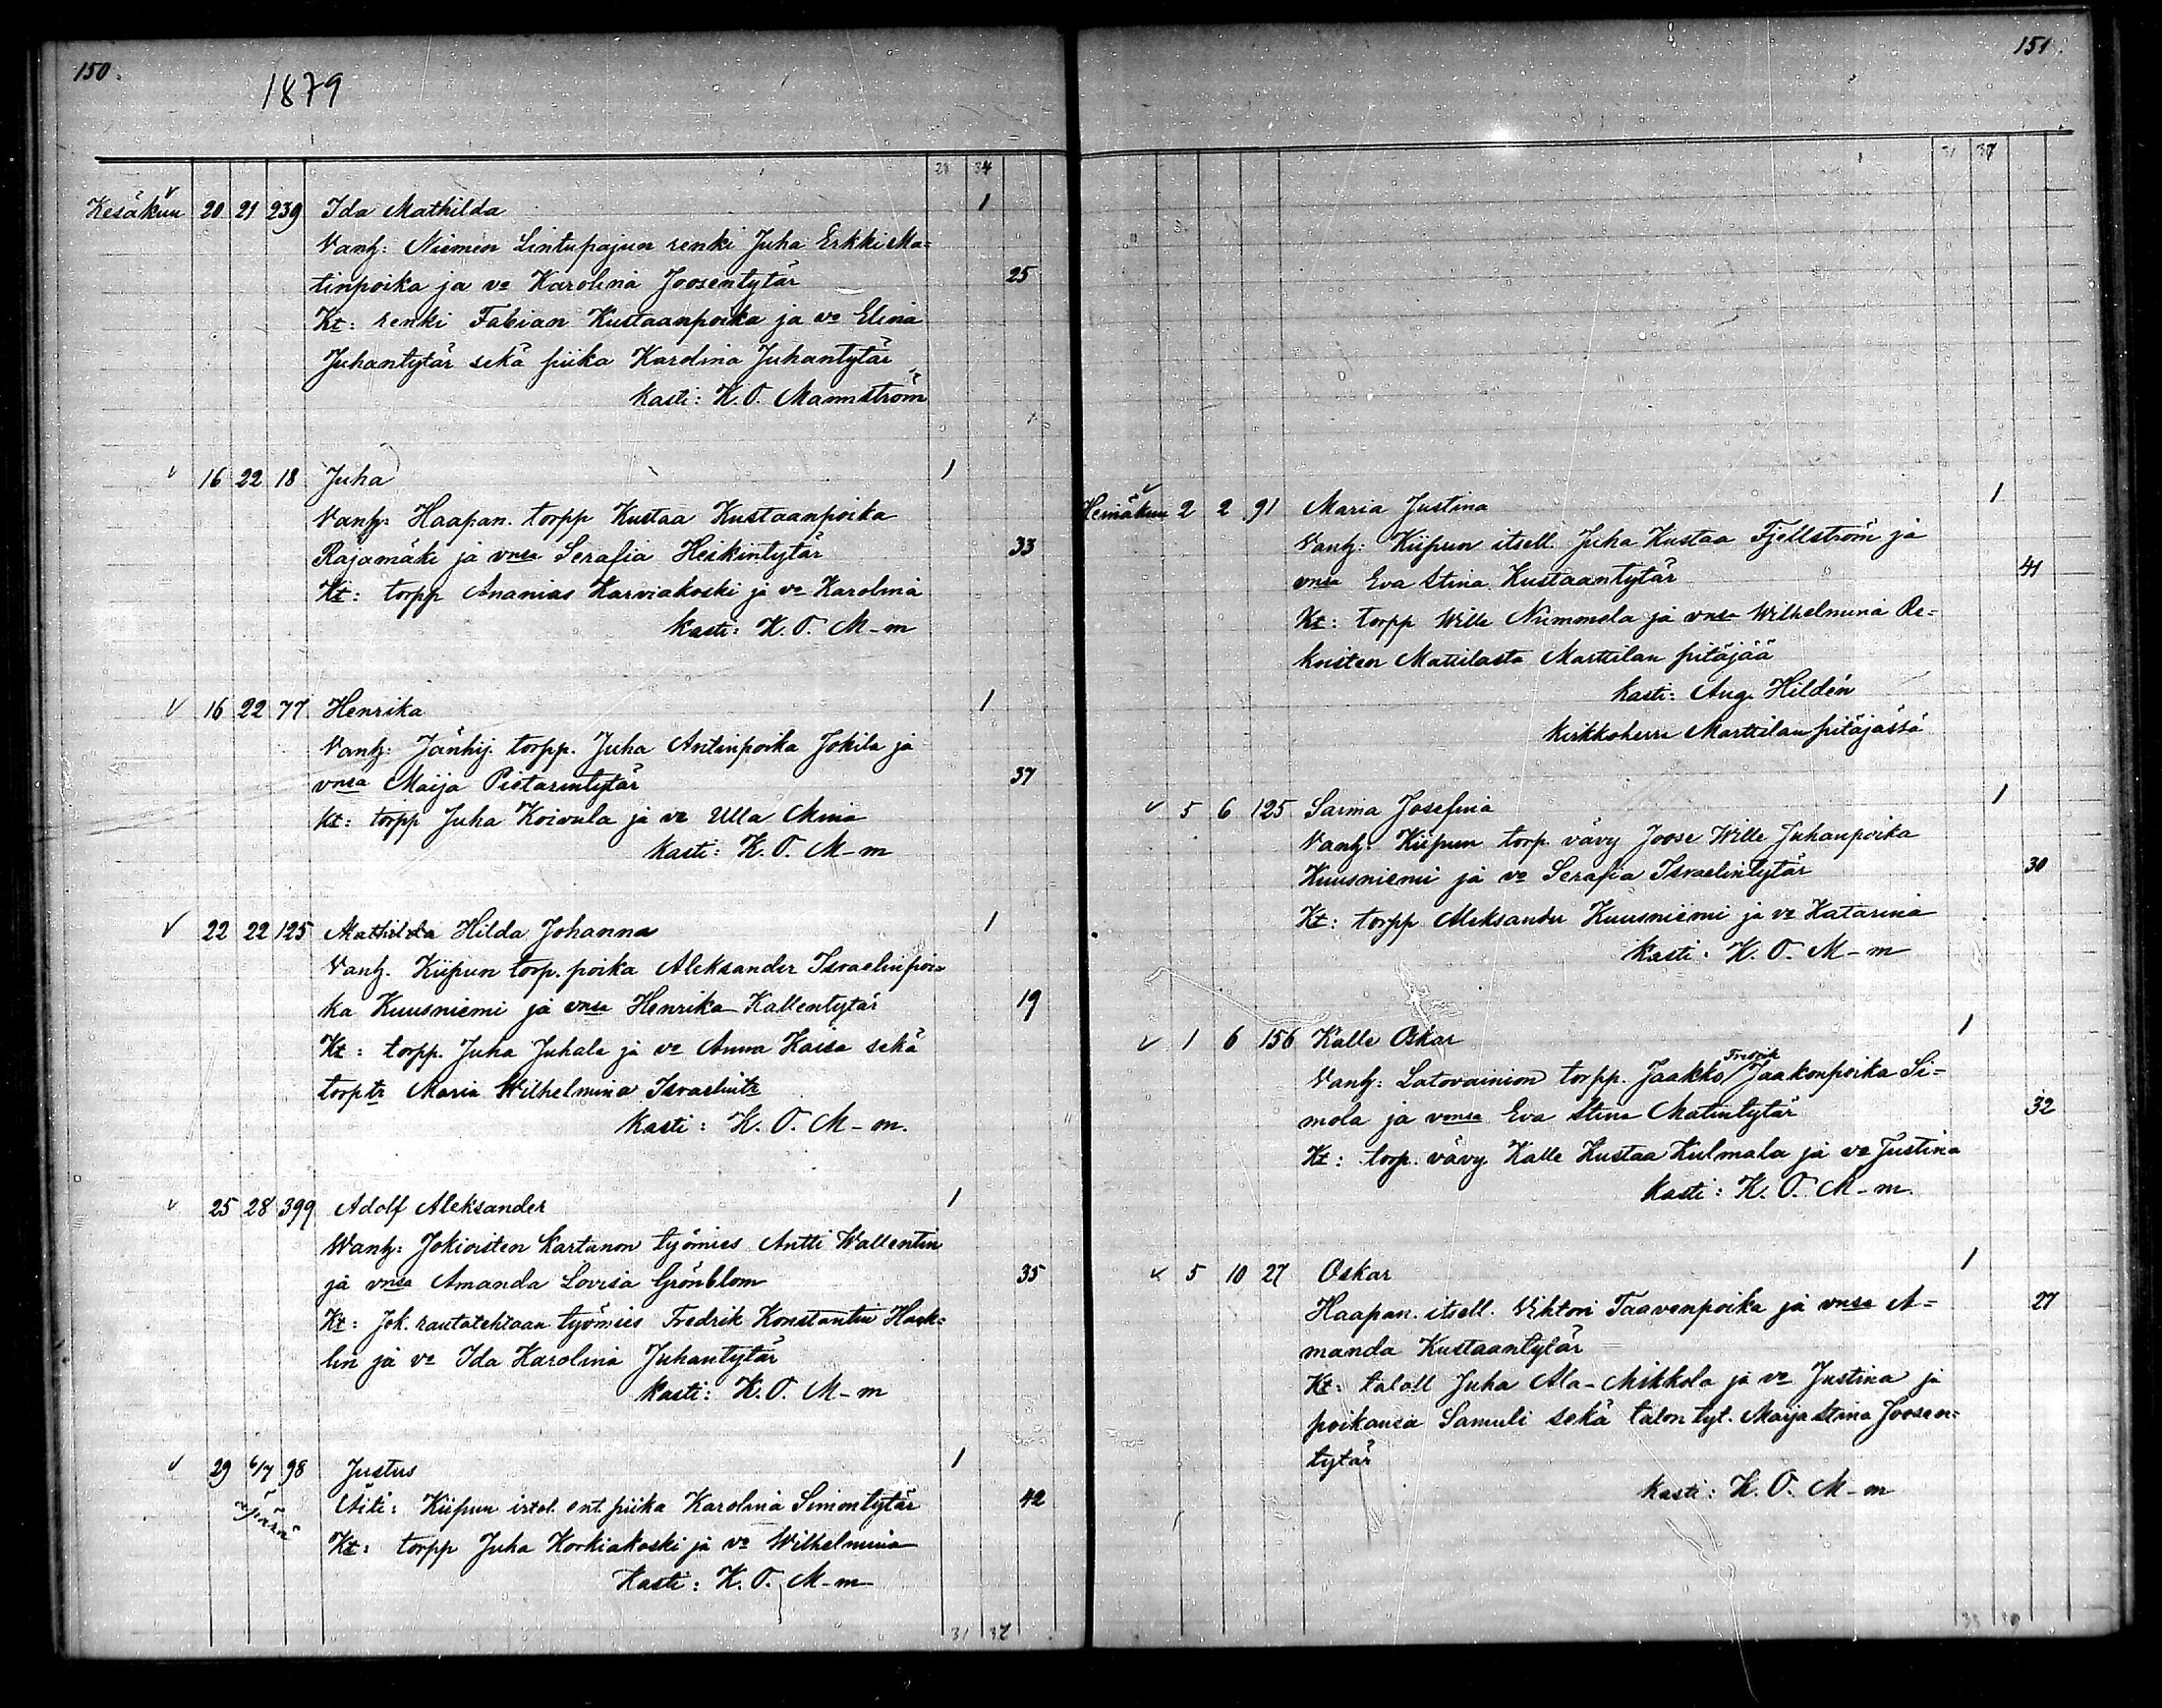 150.
1879
28 34
Kesäkuu 20 21 239 Ida Mathilda 1
Vanh: Niemen Lintupajun renki Juha Erkki Ma=
tinpoika ja vo Karolina Joosentytär 25
Kt: renki Fabian Kustaanpoika ja vo Elina
Juhantytär sekä piika Karolina Juhantytär
Kasti: K. O. Mannström
16 22 18 Juha 1
Vanh: Haapan. torpp Kustaa Kustaanpoika
Rajamäki ja vnsa Serafia Heikintytär 33
Kt: torpp Ananias Karviakoski ja vo Karolina
Kasti: K. O. M-m
16 22 77 Henrika 1
Vanh: Jänhij. torpp. Juha Antinpoika Jokila ja
vnsa Maija Pietarintytär 37
Kt: torpp Juha Koivula ja vo Ulla Mina
Kasti: K. O. M-m
22 22 125 Mathilda Hilda Johanna 1
Vanh. Kiipun torp. poika Aleksander Israelinpoi=
ka Kuusniemi ja vnsa Henrika Kallentytär 19
Kt: torpp. Juha Juhala ja vo Anna Kaisa sekä
torp tr Maria Wilhelmina Israelintr
Kasti: K. O. M-m.
25 28 399 Adolf Aleksander 1
Wanh: Jokioisten Kartanon työmies Antti Wallentin
ja vnsa Amanda Lovisa Grönblom 35
Kt: Jok. rautatehtaan työmies Fredrik Konstantin Hack=
lin ja vo Ida Karolina Juhantytär
Kasti: K. O. M-m
29 6/7 98 Justus 1
Äiti: Kiipun istel. ent. piika Karolina Simontytär 42
Kt: torpp Juha Korkiakoski ja vo Wilhelmina
Kasti: K. O. M-m
31 37
151.
31 37
Heinäkuu 2 2 91 Maria Justina 1
Vanh: Kiipun itsell. Juha Kustaa Fjellström ja
vnsa Eva Stina Kustaantytär 41
Kt: torpp Wille Nummela ja vnsa Wilhelmina Re=
koisten Mattilasta Marttilan pitäjää
Kasti: Aug. Hildén
Kirkkoherra Marttilan pitäjässä
5 6 125 Saima Josefina 1
Vanh. Kiipun torp. vävy Joose Wille Juhanpoika
Kuusniemi ja vo Serafia Israelintytär 30
Kt: torpp Aleksander Kuusniemi ja vo Katarina
Kasti: K. O. M-m
1 6 156 Kalle Oskar 1
Fredrik
Vanh: Latovainion torpp. Jaakko Jaakonpoika Si=
mola ja vmsa Eva Stina Matintytär 32
Kt: torp. vävy Kalle Kustaa Kulmala ja vo Justina
Kasti: K. O. M-m.
5 10 27 Oskar 1
Haapan. itsell. Vihtori Taavenpoika ja vnsa A= 27
manda Kustaantytär
Kt: taloll Juha Ala-Mikkola ja vo Justina ja
poikansa Samuli sekä talon tyt. Maija Stina Joosen=
tytär
Kasti: K. O. M-m